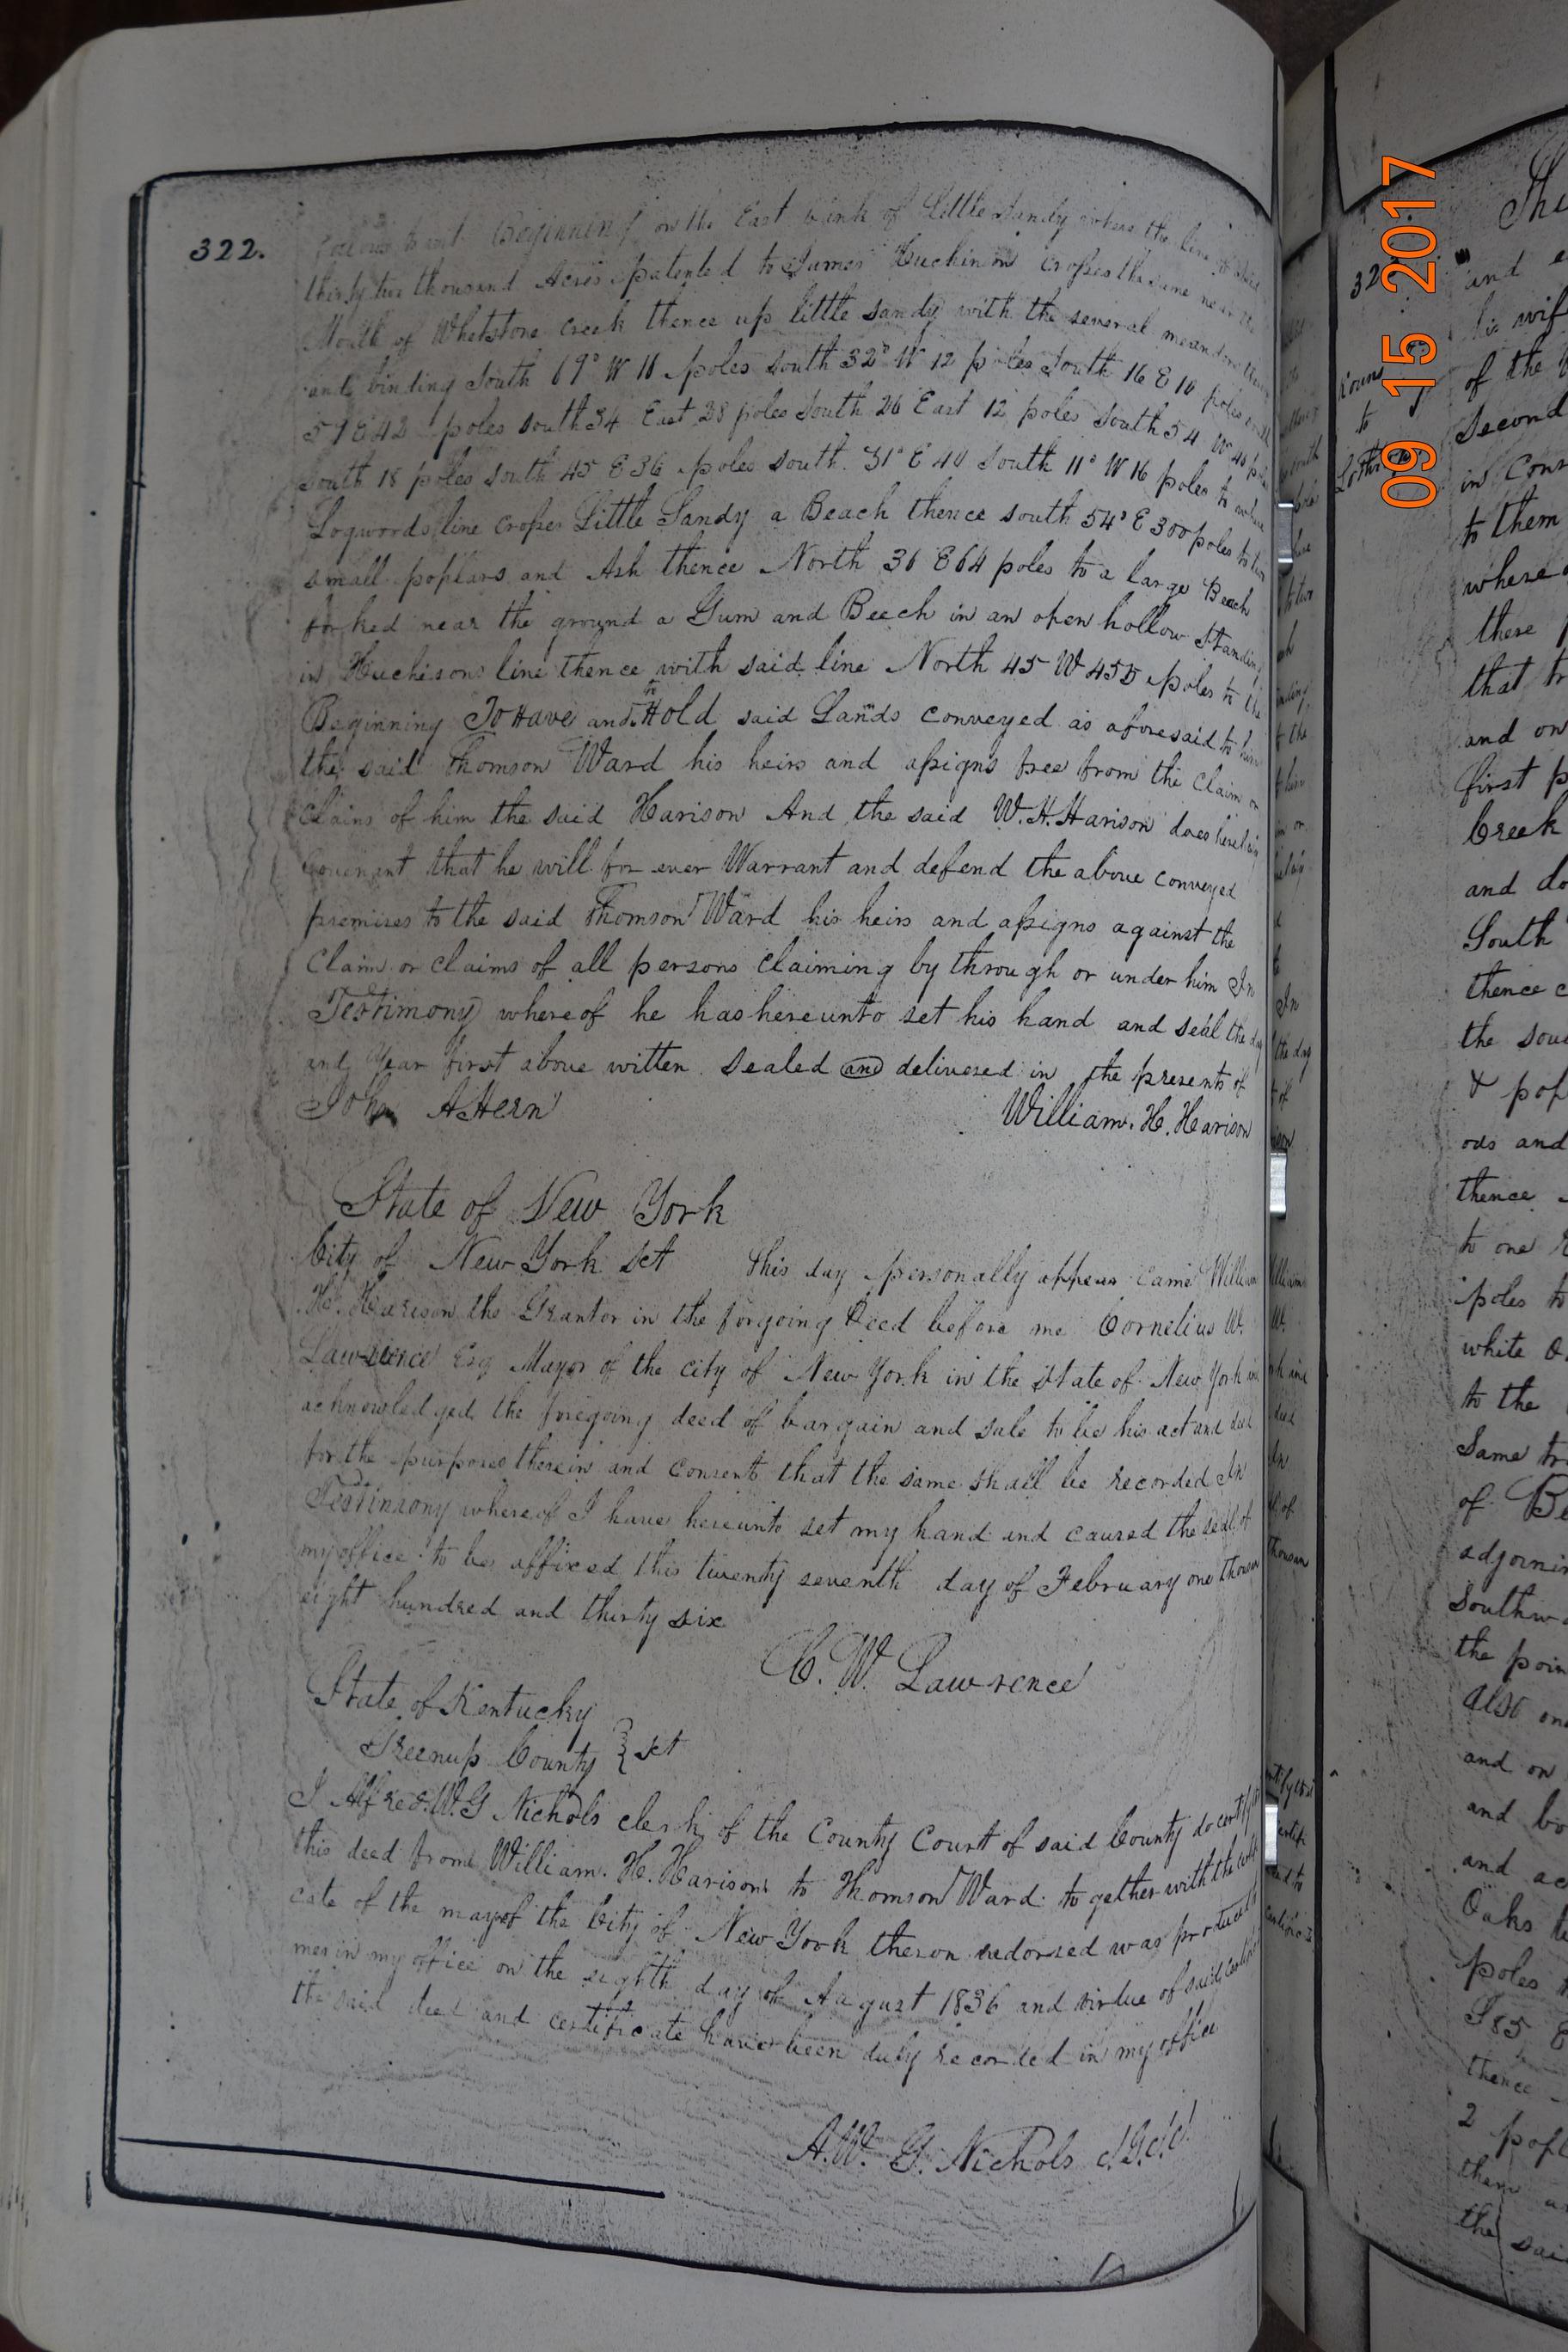 322.
follows to wit Beginning on the East bank of Little Sandy where the line of
thirty two thousand Acres patented to James Huchinson crosses the same near the
Mouth of Whetstone creek thence up little sandy with the several meanders
and binding South 69° W 11 poles south 32° W 12 poles South 16 E 10 poles south
57 E 42 poles south 34 East 28 poles South 26 East 12 poles South 54 W 40
South 18 poles south 45 E 36 poles South 31° E 40 South 11° W 16 poles to where
Logwords line crosses Little Sandy a Beach thence south 54° E 300 poles to two
small poplars and Ash thence North 36 E 64 poles to a large Beach
forked near the ground a Gum and Beech in an open hollow Standing
in Huchisons line thence with said line North 45 W 455 poles to the
Beginning To Have and to Hold said Lands conveyed as aforesaid to him
the said Thomson Ward his heirs and assigns free from the claim or
claims of him the said Harison And the said W. H. Harison does herein
Covenant that he will for ever Warrant and defend the above conveyed
premises to the said Thomson Ward his heirs and assigns against the
Claim or claims of all persons claiming by through or under him In
Testimony whereof he has hereunto set his hand and seal the day
and year first above witten. Sealed and delivered in the presents of
John A Hern William. H. Harison
State of New York
City of New York Sct This day personally appear came William
H. Harison the Grantor in the forgoing Deed before me Cornelius W.
Lawrence Esq Mayor of the city of New York in the State of New York and
acknowledged the foregoing deed of bargain and sale to be his act and deed
for the purposes therein and consents that the same shall be recorded In
Testimony whereof I have hereunto set my hand and caused the seal of
my office to be affixed this twenty seventh day of February one thousan
eight hundred and thirty six
C. W. Lawrence
State of Kentucky
Greenup County } Sct
I Alfred. W. G Nichols clerk of the County Court of said County do certify that
this deed from William. H. Harison to Thomson Ward to gether with the certifi
cate of the mayor of the City of New York theron indorsed was produced to
me in my office on the eighth day of August 1836 and virtue of said
the said deed and certificate have been duly recorded in my office
A. W. G. Nichols
09 15 2017
The
and
his wif
of the
Second
in Con
to them
where
there
that tr
and on
first p
Creek
and do
South
thence c
the sou
& pop
ods and
thence
to one
poles to
white O
to the
Same tr
of Be
adjoinin
Southw
the poin
also on
and on
and bo
and ac
Oaks
poles
S 85 E
thence
2 popl
the
the sai